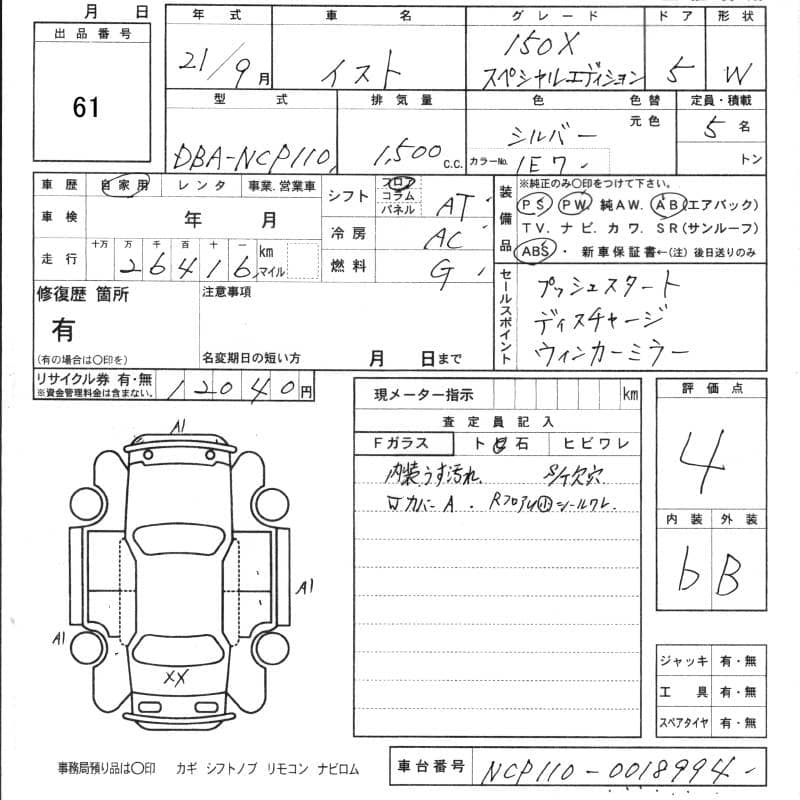 月 日
出品番号
61
年式 車名 グレード ドア 形状
21/9月 イスト 150X スペシャルエディション 5 W
型式 排気量 色 色替 定員・積載
DBA-NCP110 1,500 C.C. シルバー 元色 5 名
カラーNo. 1E7 トン
車歴 自家用 レンタ 事業.営業車
車検 年 月
走行 十万 万 千 百 十 一 km マイル
26416
シフト フロア コラム パネル AT
冷房 AC
燃料 G
装備品
※純正のみ○印をつけて下さい。
PS PW 純AW. AB(エアバック)
TV. ナビ. カワ. SR(サンルーフ)
ABS・ 新車保証書←(注) 後日送りのみ
修復歴 箇所
有
(有の場合は○印を)
注意事項
名変期日の短い方 月 日まで
セールスポイント
プッシュスタート
ディスチャージ
ウィンカーミラー
リサイクル券 有・無
※資金管理料金は含まない。
12040円
現メーター指示 km
査定員記入
Fガラス ト石 ヒビワレ
内装うす汚れ. S/T欠穴
カバーA. シールワレ.
評価点
4
内装 外装
b B
A1
A1
A1
XX
ジャッキ 有・無
工具 有・無
スペアタイヤ 有・無
事務局預り品は○印 カギ シフトノブ リモコン ナビロム
車台番号 NCP110-0018994